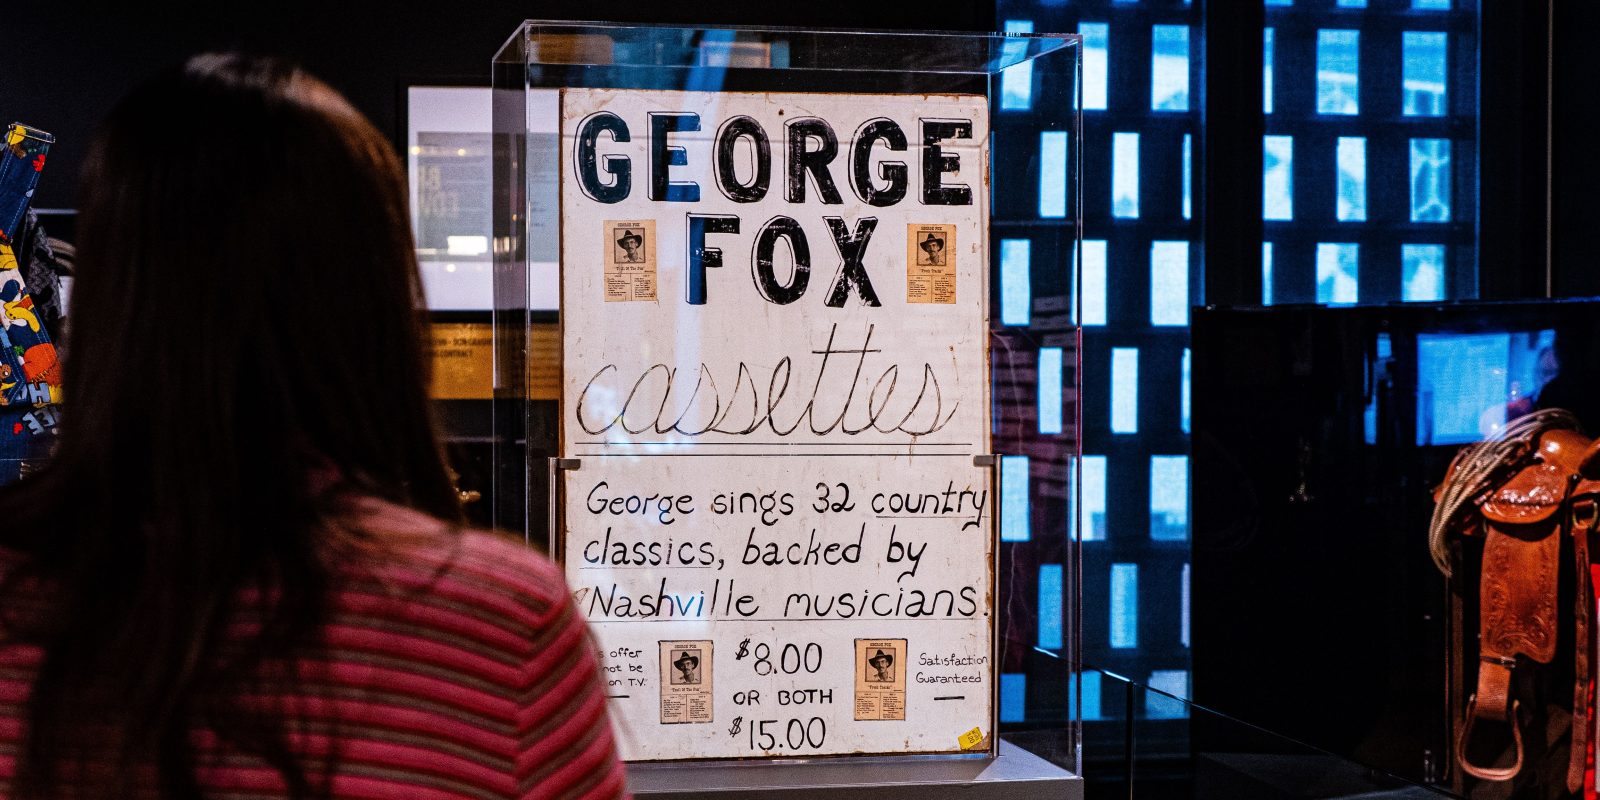 GEORGE
FOX
cassettes
George sings 32 country
classics, backed by
Nashville musicians.
offer
not be
on T.V.
$8.00
OR BOTH
$15.00
Satisfaction
Guaranteed
GEORGE FOX
GEORGE FOX
GEORGE FOX
GEORGE FOX
CONTRACT